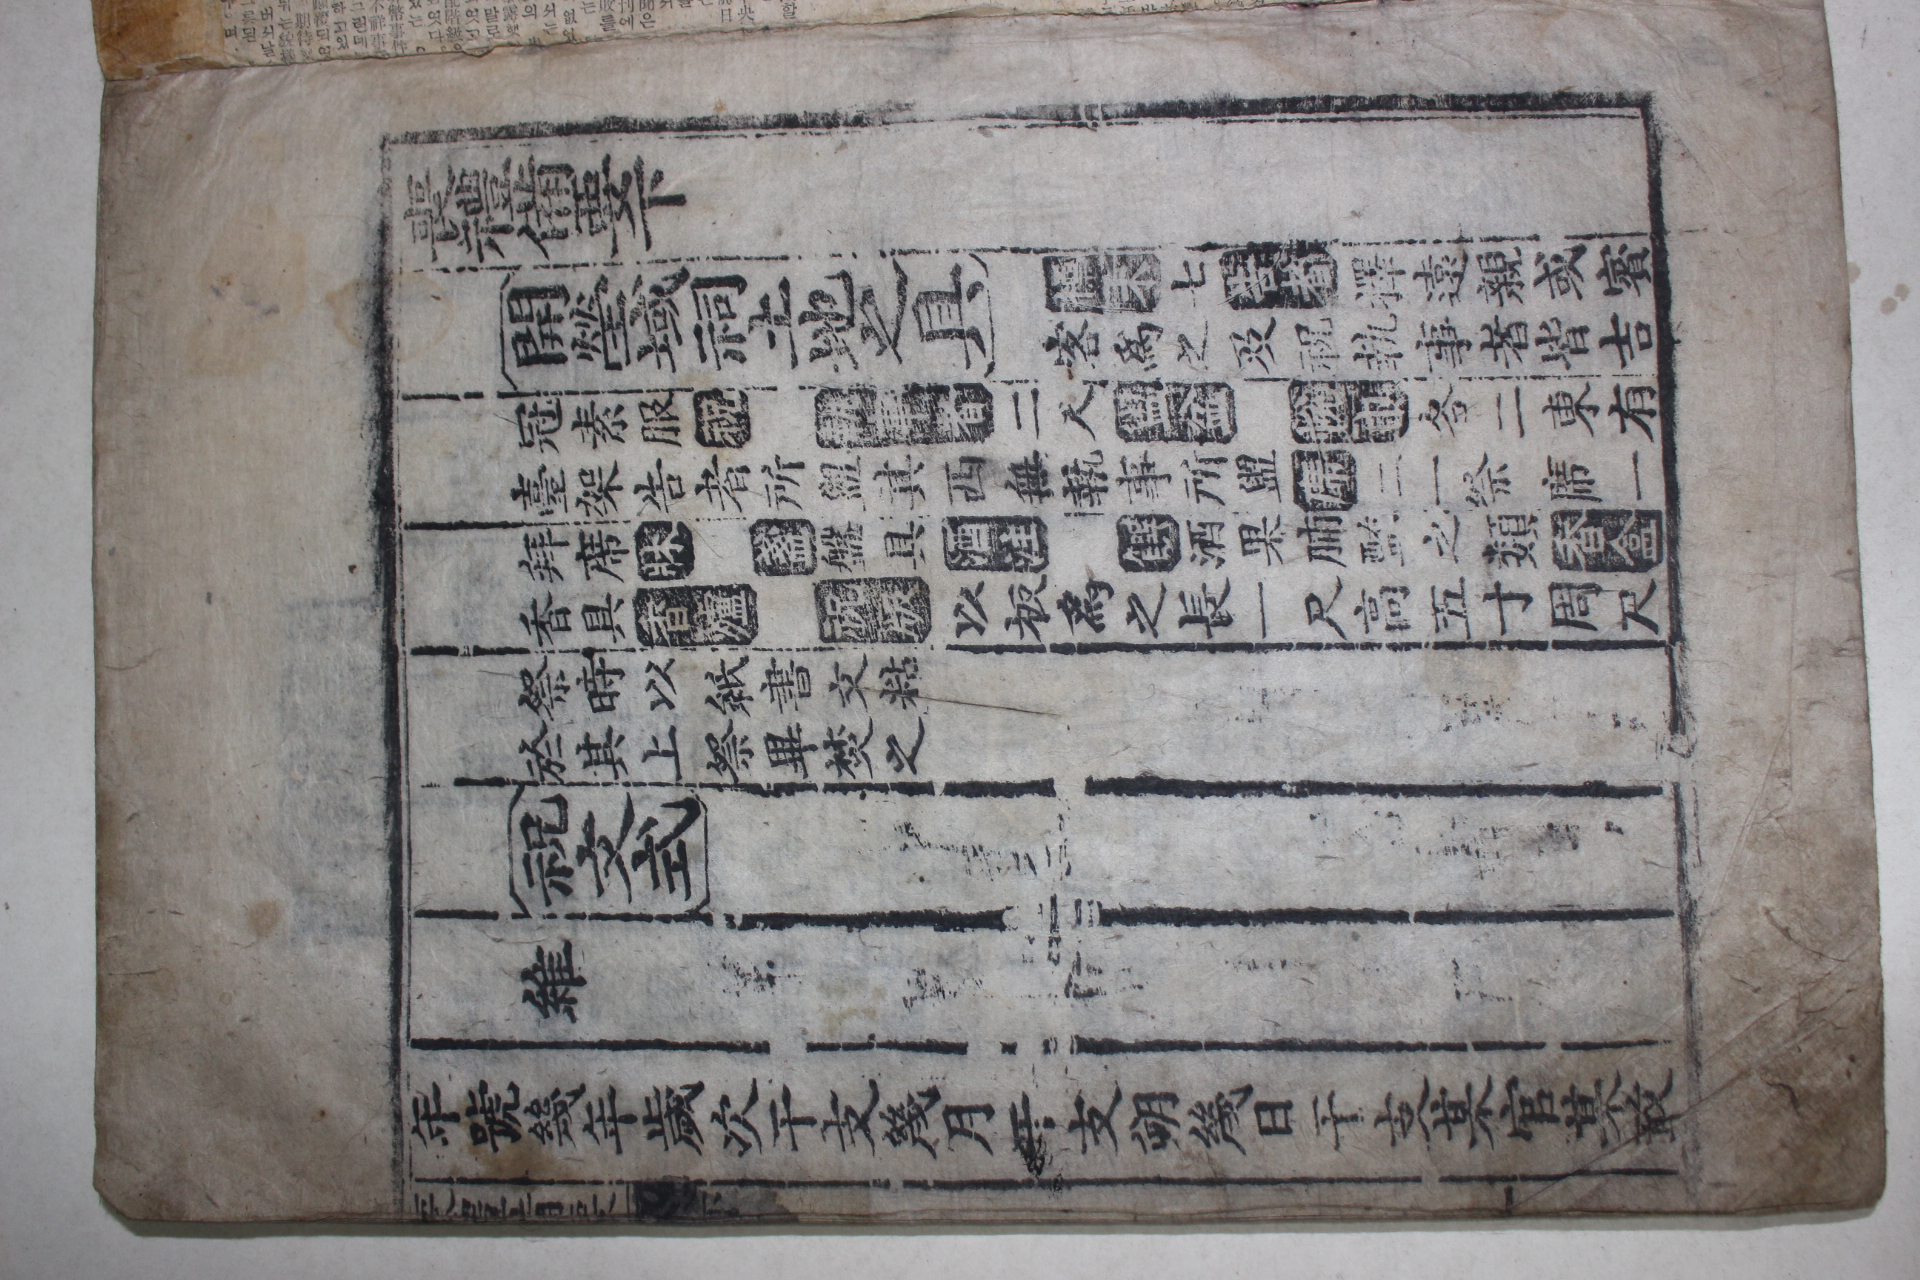 喪禮備要下
開塋域祠土地之具
標木七告者擇遠親或賓
客爲之及祝執事者皆吉
冠素服祝 執事者二人盥盆 帨巾各二東有
臺架告者所盥其西無執事所盥席二一祭席一
拜席牀 盞盤具酒注 饌酒果脯醢之類香盒
香具香爐 祝版以板爲之長一尺高五寸周尺
祭時以紙書文粘
於其上祭畢焚之
祝文式
維
年號幾年歲次干支幾月干支朔幾日干支某官某敢